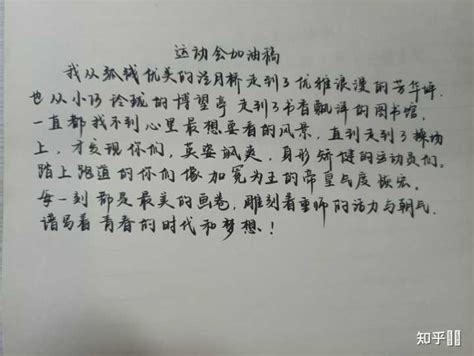 运动会加油稿
我从弧线优美的洁月桥走到了优雅浪漫的芳华坪.
也从小巧玲珑的博望亭走到了书香飘洋的图书馆.
一直都找不到心里最想要看的风景,直到走到了操场
上,才发现你们,英姿飒爽,身形矫健的运动员们.
踏上跑道的你们像加冕为王的帝皇气度恢宏.
每一刻都是最美的画卷,雕刻着重师的活力与朝气.
谱写着青春的时代和梦想!
知乎